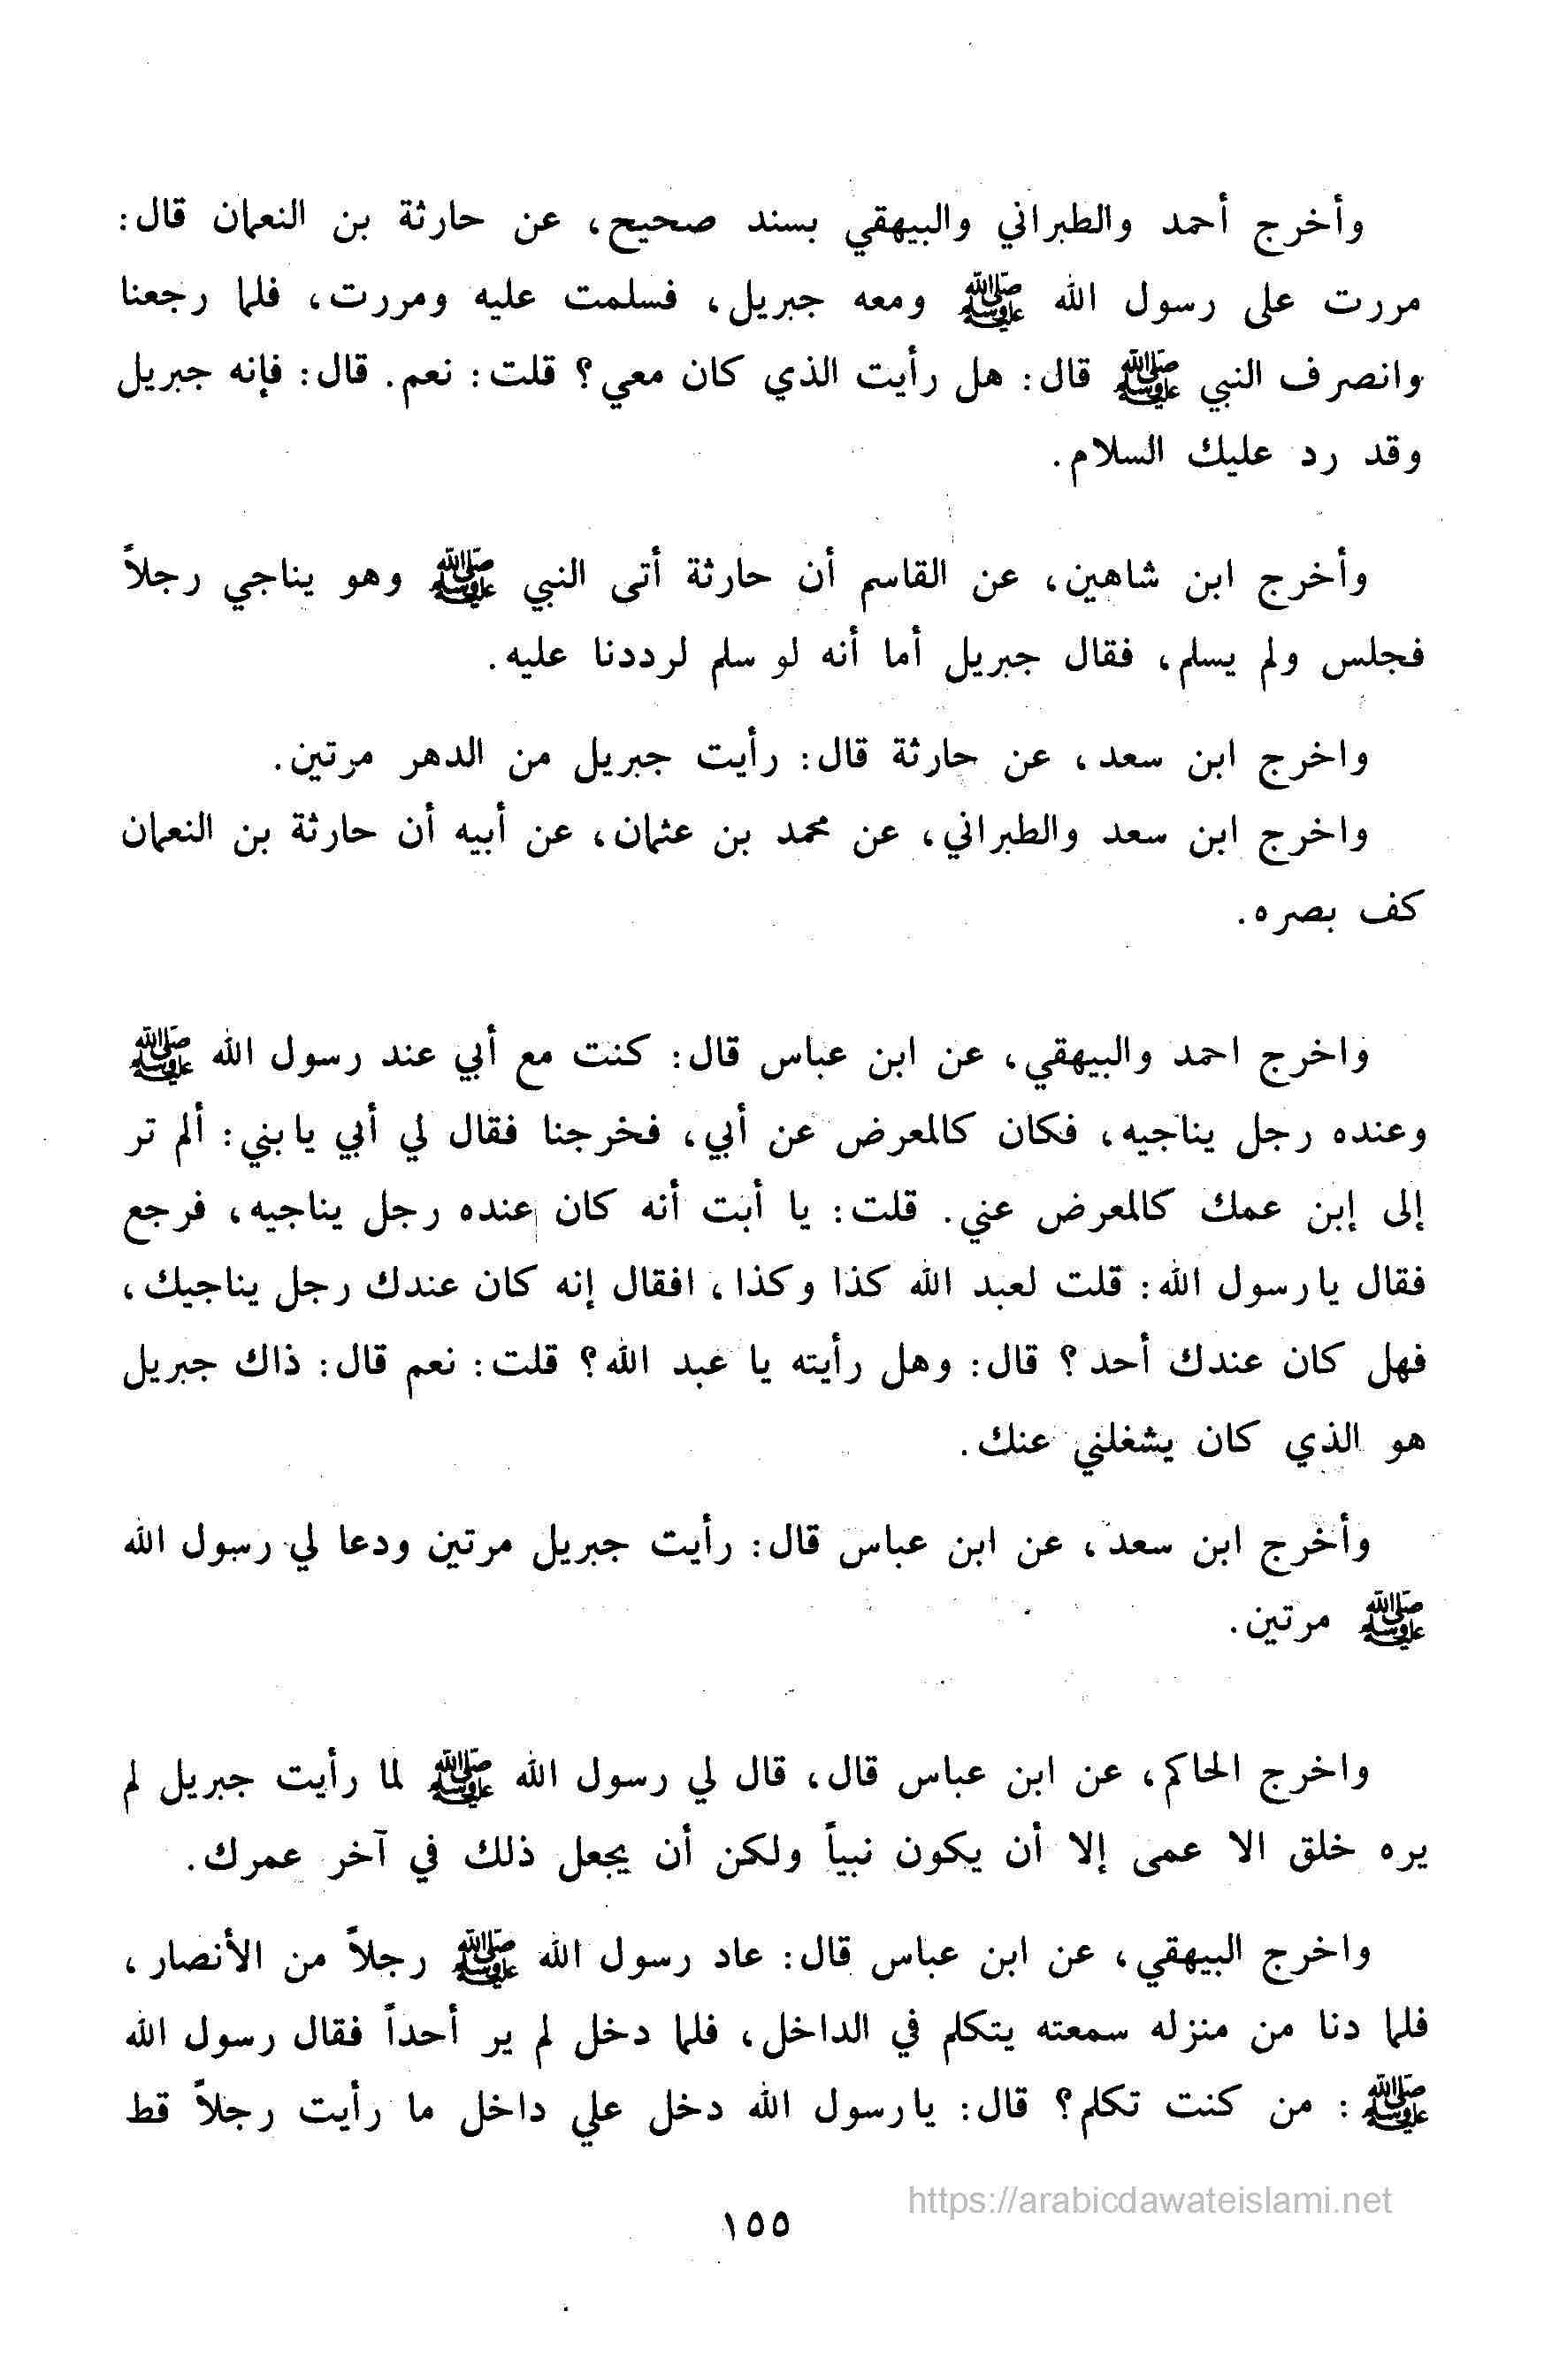 وأخرج أحمد والطبراني والبيهقي بسند صحيح، عن حارثة بن النعمان قال:
مررت على رسول الله ﷺ ومعه جبريل، فسلمت عليه ومررت، فلما رجعنا
وانصرف النبي ﷺ قال: هل رأيت الذي كان معي؟ قلت: نعم. قال: فإنه جبريل
وقد رد عليك السلام.
وأخرج ابن شاهين، عن القاسم أن حارثة أتى النبي ﷺ وهو يناجي رجلاً
فجلس ولم يسلم، فقال جبريل أما أنه لو سلم لرددنا عليه.
واخرج ابن سعد، عن حارثة قال: رأيت جبريل من الدهر مرتين.
واخرج ابن سعد والطبراني، عن محمد بن عثمان، عن أبيه أن حارثة بن النعمان
كف بصره.
واخرج احمد والبيهقي، عن ابن عباس قال: كنت مع أبي عند رسول الله ﷺ
وعنده رجل يناجيه، فكان كالمعرض عن أبي، فخرجنا فقال لي أبي يابني: ألم تر
إلى إبن عمك كالمعرض عني. قلت: يا أبت أنه كان عنده رجل يناجيه، فرجع
فقال يارسول الله: قلت لعبد الله كذا وكذا، افقال إنه كان عندك رجل يناجيك،
فهل كان عندك أحد؟ قال: وهل رأيته يا عبد الله؟ قلت: نعم قال: ذاك جبريل
هو الذي كان يشغلني عنك.
وأخرج ابن سعد، عن ابن عباس قال: رأيت جبريل مرتين ودعا لي رسول الله
ﷺ مرتين.
واخرج الحاكم، عن ابن عباس قال، قال لي رسول الله ﷺ لما رأيت جبريل لم
يره خلق الا عمى إلا أن يكون نبياً ولكن أن يجعل ذلك في آخر عمرك.
واخرج البيهقي، عن ابن عباس قال: عاد رسول الله ﷺ رجلاً من الأنصار،
فلما دنا من منزله سمعته يتكلم في الداخل، فلما دخل لم ير أحداً فقال رسول الله
ﷺ: من كنت تكلم؟ قال: يارسول الله دخل علي داخل ما رأيت رجلاً قط
https://arabicdawateislami.net
١٥٥